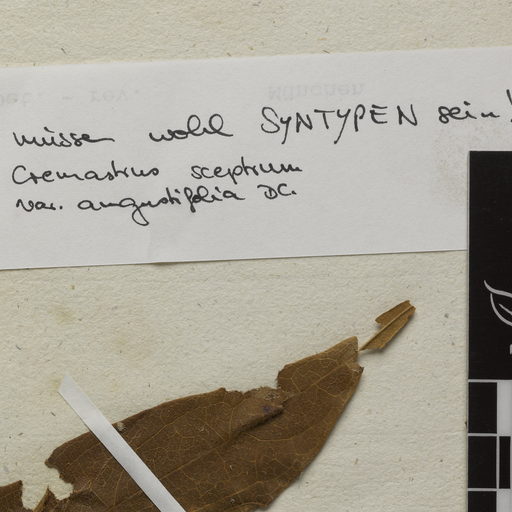 Det. - rev. München
müssen wohl SYNTYPEN sein!
Cremastrus sceptrum
var. angustifolia DC.